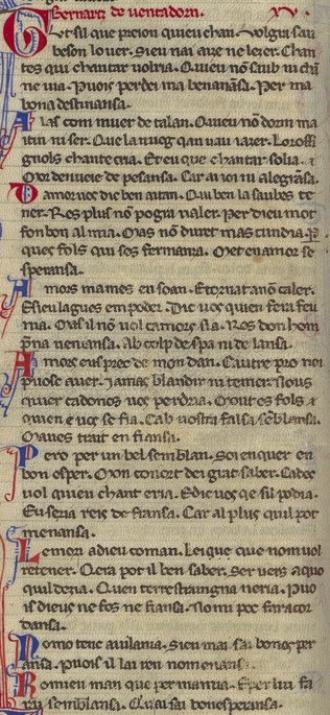 Bernartz de uentadorn. XV.
Et sil que preion quieu chan. uolgui sau
beson louer. Sieu nai aize ne lezer. Chan
tes qui chantar uolria. Quieu nō saub ni chi
ne uia. Puois perdei ma benanāsa. Per ma
bona destinansa.
Alas com muer de talan. Quieu nō dorm ma
itin ni ser. Que la nueg qan uau iazer. Lorossi
gnols chante cria. Et eu que chantar solia.
Mor denueie de pesansa. Car ai ioi ni alegrāsa.
Damor uos dic ben aitan. Qui ben la saubes te
ner. Res plus nō pogra ualer. Per dieu mot
fon bon al mia. Mas nō duret mas cun dia.
ques fols qui ses fermansa. Met en amor se
speransa.
Amors mames en soan. E tornat a nō caler.
E sieu lagues en poder. Dic uos quien feira feu
nia. Mas il nō uol camors sia. Res don hom
p̄na uenansa. Ab colp de spa ni de lansa.
Amors eus prec de mon dan. Cautre pro noi
puosc auer. Iamas blandir ni temer. Nous
quier cadoncs uos perdria. Mout es fols
quien uos se fia. Cab uostra falsa sēblansa.
Maues trait en fiansa.
Pero per un bel semblan. Soi enquer en
bon esper. Mon conort dei grat saber. Cades
uol quieu chant e ria. E dic uos qe sil podia.
Eu seria reis de fransa. Car al plus quil pot
menansa.
Lemozi adieu coman. Lei que que nom uol
retener. Qera pot il ben saber. Ser uers aquo
quil dizia. Quen terrestraingna neria. Puo
is dieus ne fes ne fiansa. No mi poc far acor
dansa.
Nomo tenc a uilania. Sieu mai sai bonesper
ansa. Puois il lai ren nomenansa.
Romieu man que per mamia. E per lui fa
rai semblansa. Quai sai bonesperansa.